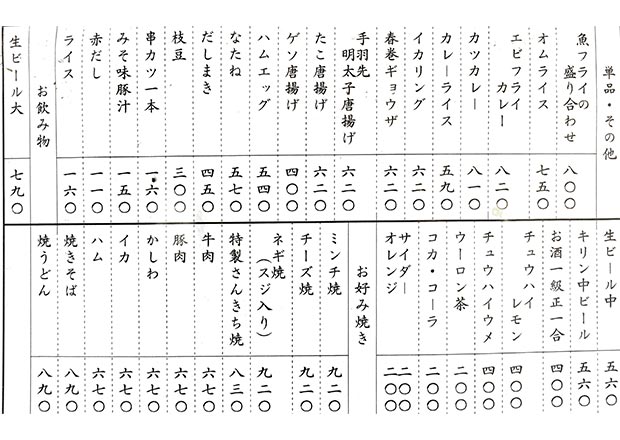 単品・その他
魚フライの
盛り合わせ 八〇〇
オムライス 七五〇
エビフライ
カレー 八二〇
カツカレー 八一〇
カレーライス 五九〇
イカリング 六二〇
春巻ギョウザ 六二〇
手羽先
明太子唐揚げ 六二〇
たこ唐揚げ 六二〇
ゲソ唐揚げ 四〇〇
ハムエッグ 五四〇
なたね 五七〇
だしまき 四五〇
枝豆 三〇〇
串カツ一本 一六〇
みそ味豚汁 一五〇
赤だし 一一〇
ライス 一六〇
お飲み物
生ビール大 七九〇
生ビール中 五六〇
キリン中ビール 五六〇
お酒一級正一合 四〇〇
チュウハイ
レモン 四〇〇
チュウハイウメ 四〇〇
ウーロン茶 二〇〇
コカ・コーラ 二〇〇
サイダー 二〇〇
オレンジ 二〇〇
お好み焼き
ミンチ焼 九二〇
チーズ焼 九二〇
ネギ焼
(スジ入り) 九二〇
特製さんきち焼 八三〇
牛肉 六七〇
豚肉 六七〇
かしわ 六七〇
イカ 六七〇
ハム 六七〇
焼きそば 八九〇
焼うどん 八九〇